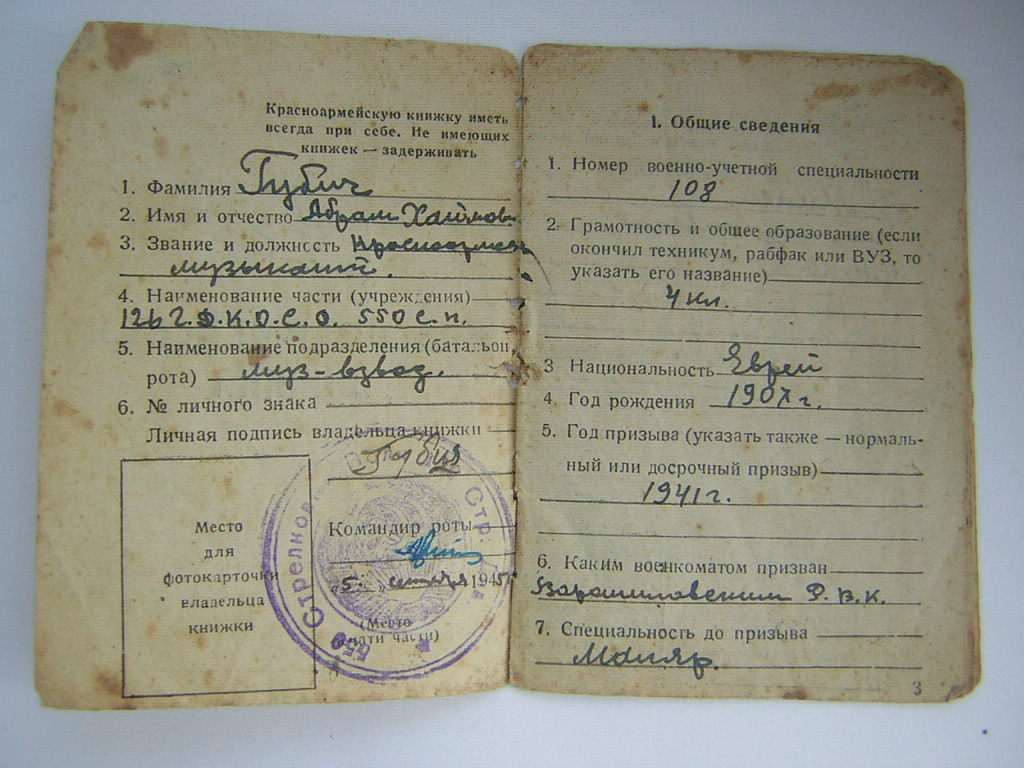 Красноармейскую книжку иметь
всегда при себе. Не имеющих
книжек — задерживать
1. Фамилия Губич
2. Имя и отчество Абрам Хаймов
3. Звание и должность Красноармеец
музыкант.
4. Наименование части (учреждения)
550 с.п.
5. Наименование подразделения (батальон,
рота) муз-взвод.
6. № личного знака
Личная подпись владельца книжки
Губич
Место
для
фотокарточки
владельца
книжки
Командир роты
"5" сентября 1945
(Место
печати части)
550 Стрелков Стр.
1. Общие сведения
1. Номер военно-учетной специальности
108
2. Грамотность и общее образование (если
окончил техникум, рабфак или ВУЗ, то
указать его название)
4 кл.
3 Национальность Еврей
4. Год рождения 1907 г.
5. Год призыва (указать также — нормаль-
ный или досрочный призыв)
1941 г.
6. Каким военкоматом призван
Ворошиловским Р.В.К.
7. Специальность до призыва
Маляр.
3